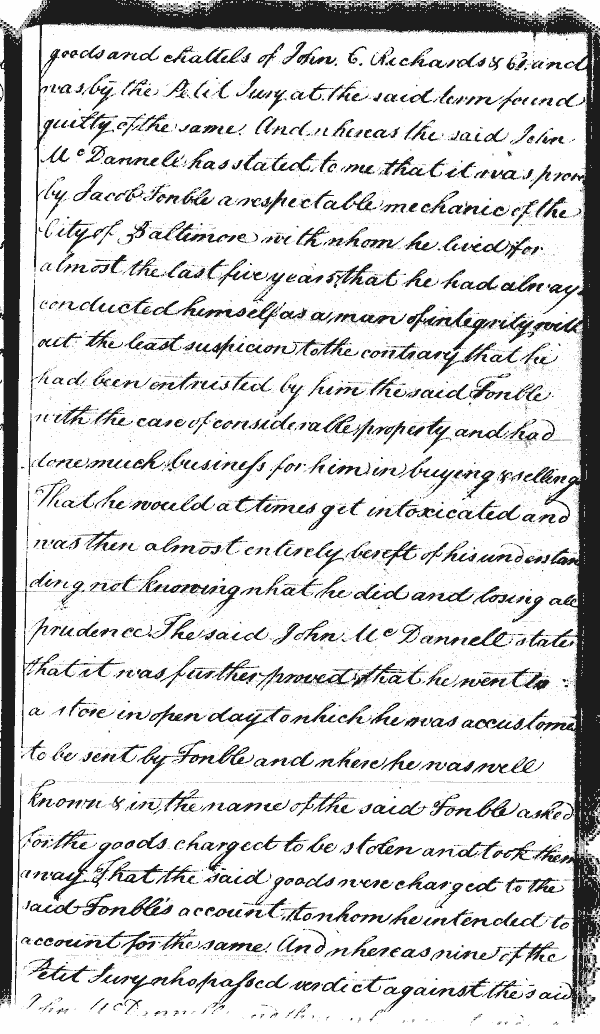 goods and chattels of John. C. Richards & Co. and
was by the Petit Jury at the said term found
guilty of the same. And whereas the said John
McDannell has stated to me that it was prov
by Jacob Fonble a respectable mechanic of the
City of Baltimore with whom he lived for
almost the last five years, that he had always
conducted himself as a man of integrity with
out the least suspicion to the contrary that he
had been entrusted by him the said Fonble
with the care of considerable property and had
done much business for him in buying & selling
That he would at times get intoxicated and
was then almost entirely bereft of his understan
ding not knowing what he did and losing all
prudence. The said John McDannell states
that it was further proved that he went to
a store in open day to which he was accustomed
to be sent by Fonble and where he was well
known & in the name of the said Fonble asked
for the goods charged to be stolen and took them
away. That the said goods were charged to the
said Fonble's account, to whom he intended to
account for the same. And whereas nine of the
Petit Jury who passed verdict against the said
John McDannell